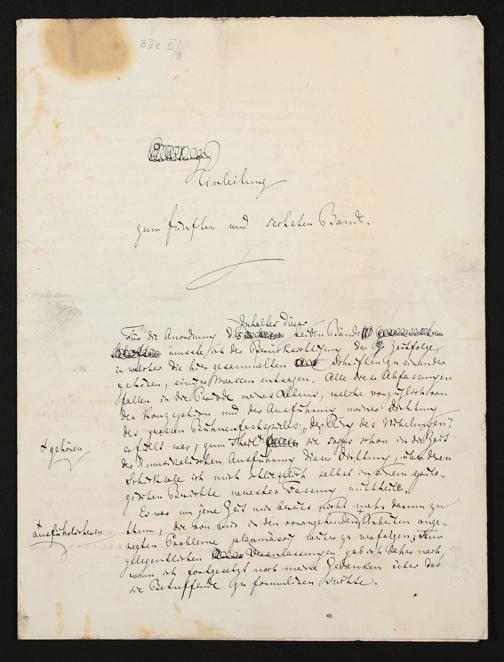 B II e III/9
Einleitung
zum fünften und sechsten Band.
Inhaltes dieser
Für die Anordnung des beiden Bände
musste ich der Berücksichtigung der Zeitfolge,
in welcher die hier gesammelten Schriften zu einander
gehören, einigermaassen entsagen. Alle diese Abfassungen
fallen in die Periode meines Lebens, welche vorzüglich von
der Konzeption und der Ausführung meiner Dichtung
des grossen Bühnenfestspieles: "der Ring des Nibelungen"
erfüllt war; zum Theil sie sogar schon in die Zeit
+ gehören
der musikalischen Ausführung dieser Dichtung, über deren
Schicksale ich mich schliesslich selbst in einem epilo-
gischen Berichte neuester Fassung mittheile.
Es war um jene Zeit mir bereits nicht mehr darum zu
thun, die von mir in den vorangehenden Arbeiten ange-
regten Probleme planmässig weiter zu verfolgen; Nur
ausführlicheren
gelegentlichen Veranlassungen gab ich daher nach,
wenn ich fortgesetzt noch meine Gedanken über das
sie Betreffende zu formuliren suchte.